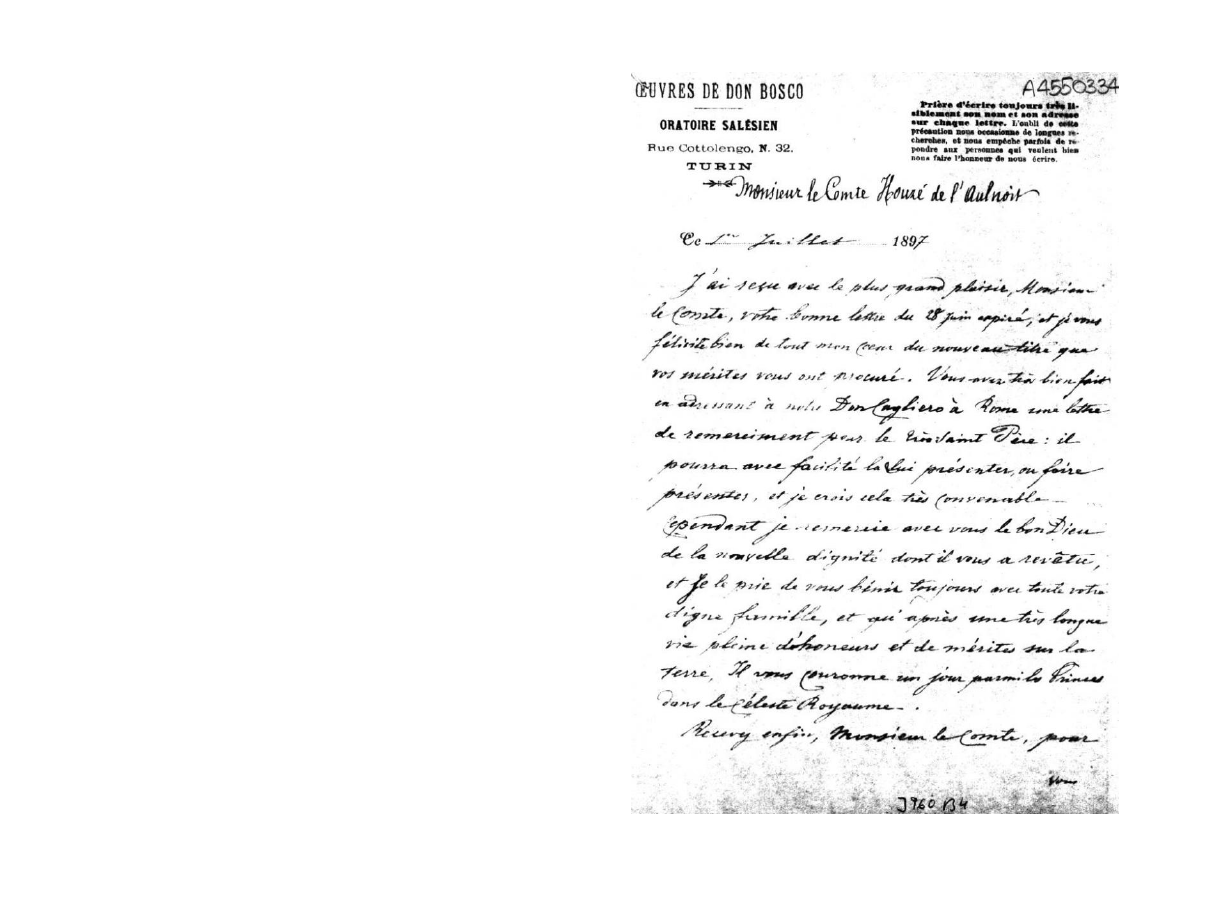 ŒUVRES DE DON BOSCO
ORATOIRE SALÉSIEN
Rue Cottolengo, N. 32.
TURIN
A4550334
Prière d'écrire toujours très li-
siblement son nom et son adresse
sur chaque lettre. L'oubli de cette
précaution nous occasionne de longues re-
cherches, et nous empêche parfois de ré-
pondre aux personnes qui veulent bien
nous faire l'honneur de nous écrire.
Monsieur le Comte Houzé de l'Aulnoit
Ce 1er Juillet 1897
J'ai reçu avec le plus grand plaisir, Monsieur
le Comte, votre bonne lettre du 28 juin expiré, et je vous
félicite bien de tout mon Cœur du nouveau titre que
vos mérites vous ont procuré. Vous avez très bien fait
en adressant à notre Don Cagliero à Rome une lettre
de remerciment pour le Très Saint Père : il
pourra avec facilité la Lui présenter, ou faire
présenter, et je crois cela très Convenable
Cependant je remercie avec vous le bon Dieu
de la nouvelle dignité dont il vous a revêtu,
et Je le prie de vous bénir toujours avec toute votre
digne famille, et qu'après une très longue
vie pleine d'honeurs et de mérites sur la
terre, Il vous Couronne un jour parmi les Princes
dans le Céleste Royaume.
Recevez enfin, Monsieur le Comte, pour
vous
J960 B4